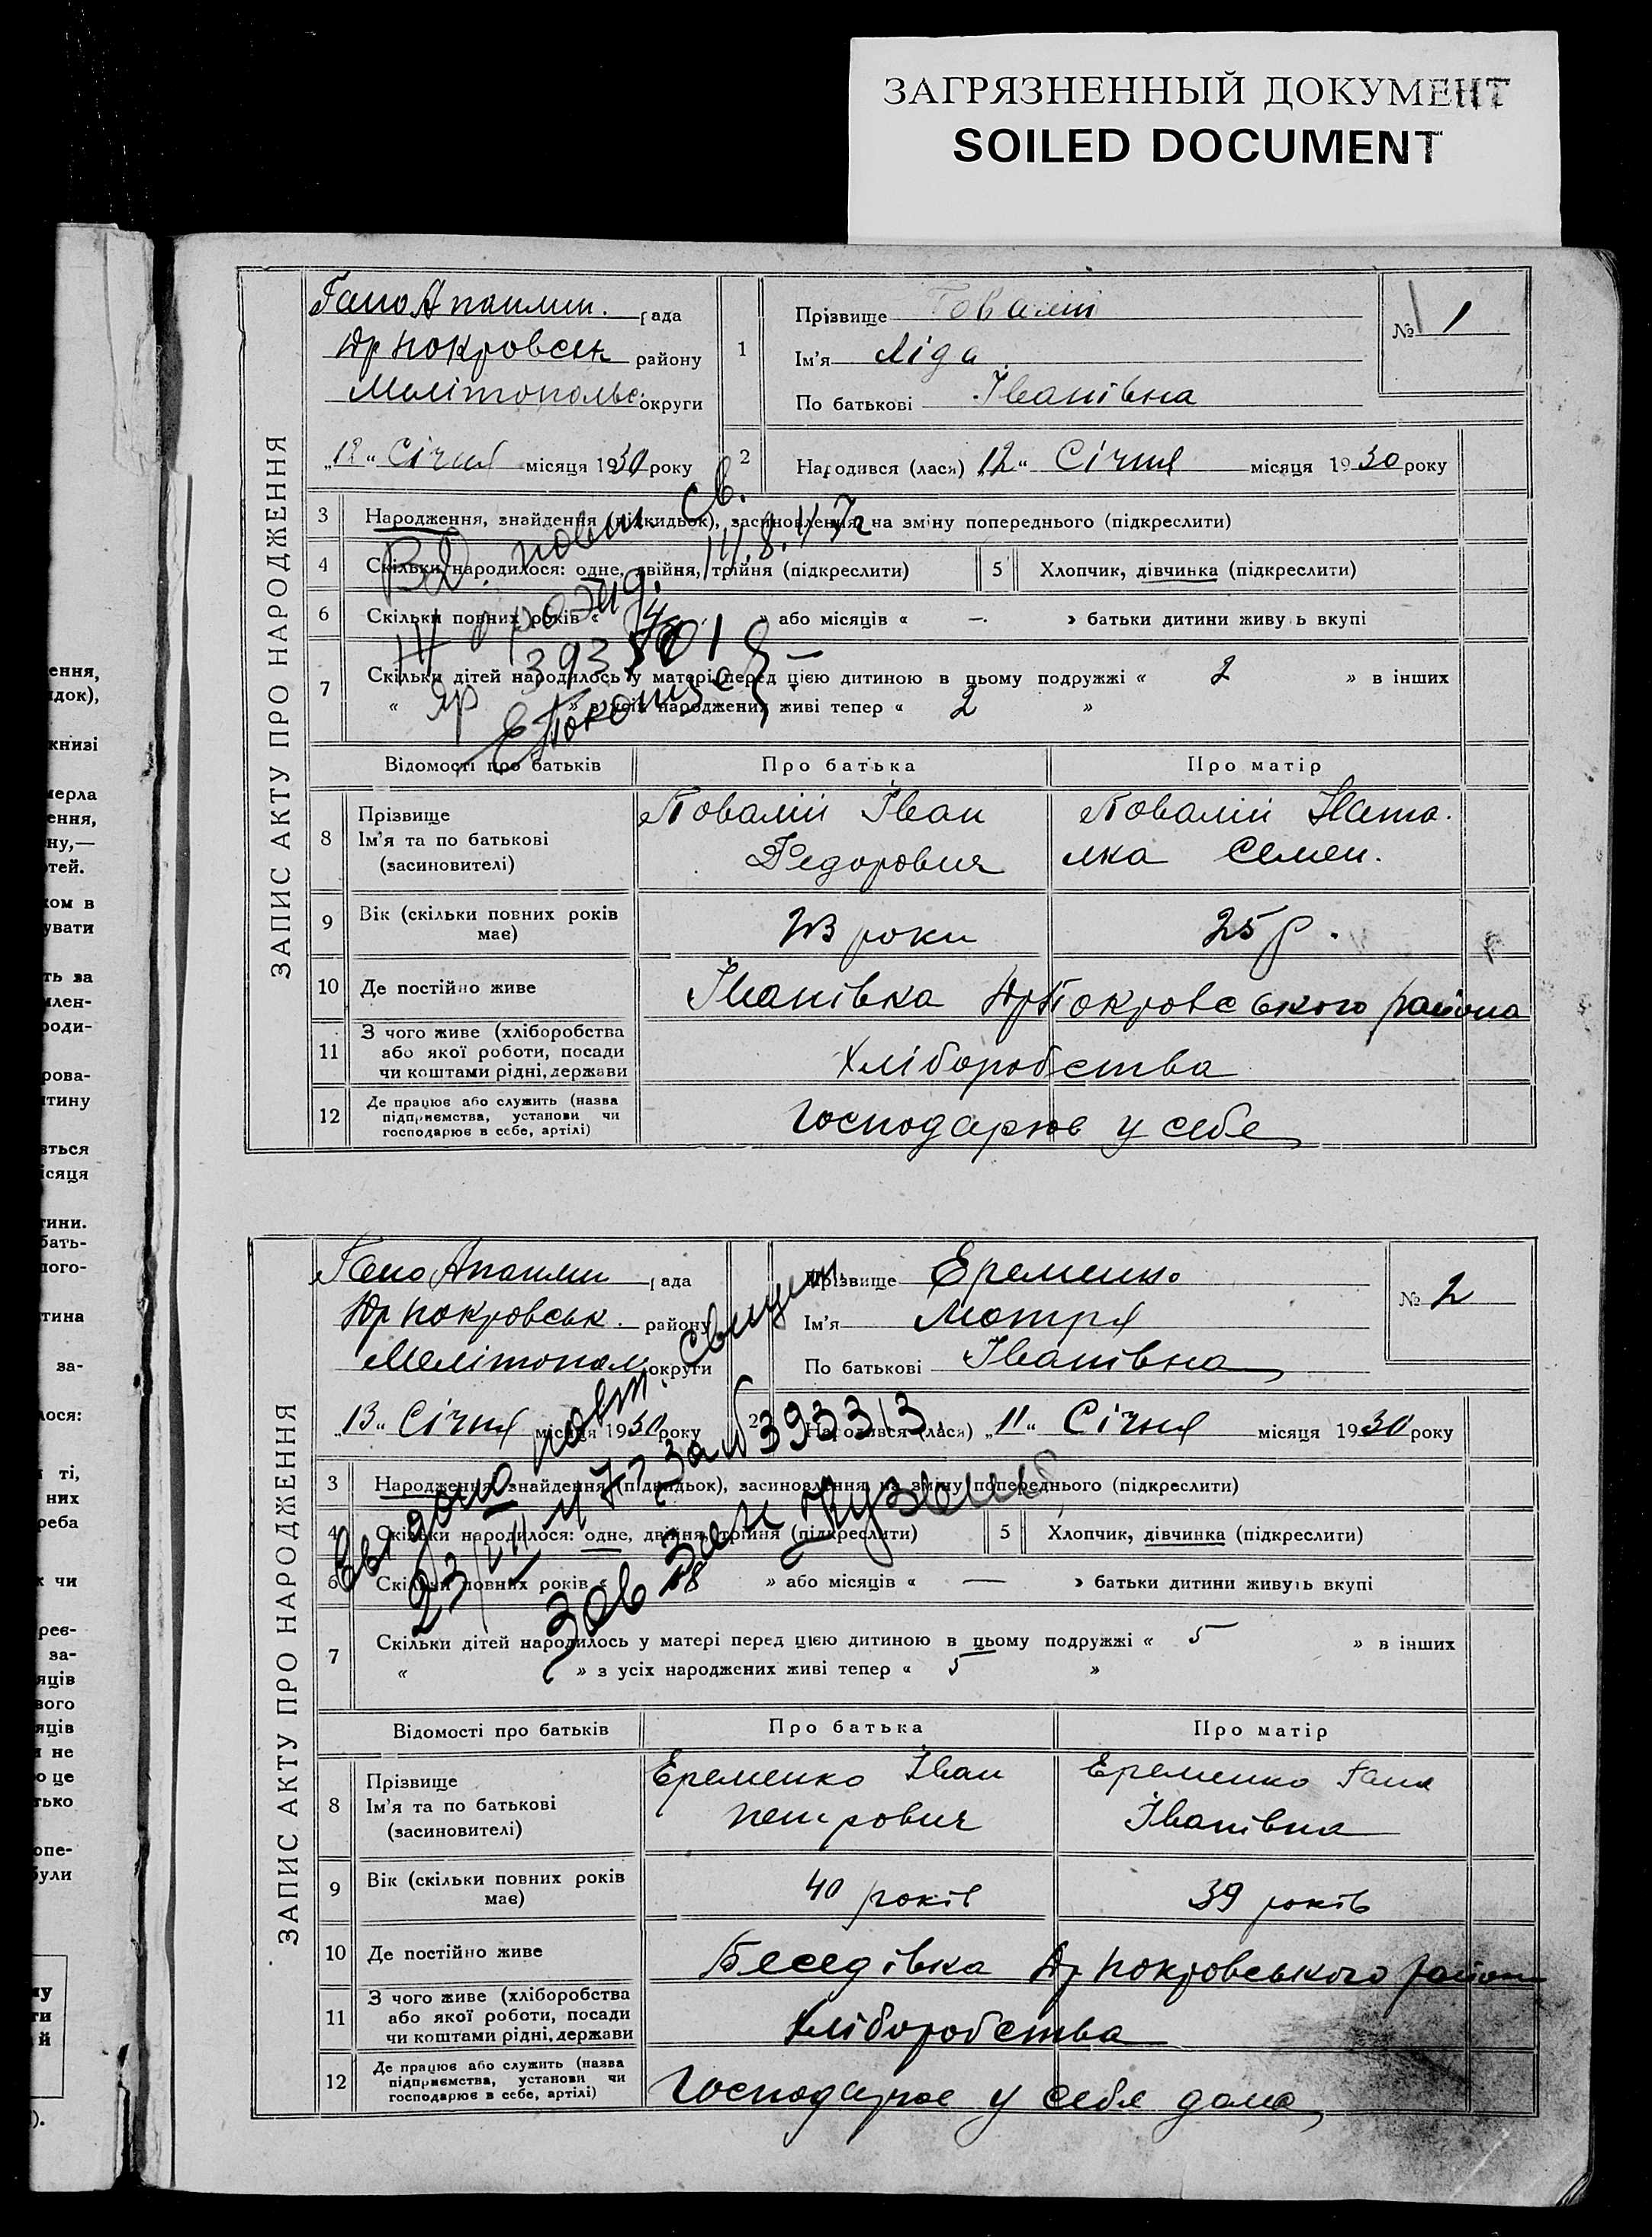 ЗАГРЯЗНЕННЫЙ ДОКУМЕНТ
SOILED DOCUMENT
ення,
док),
книзі
мерла
ення,
ну,—
тей.
ком в
увати
ть за
млен-
роди-
рова-
тину
ється
ісяця
тини.
бать-
ного-
тина
за-
лося:
ті,
них
реба
чи
рев-
за-
яців
вого
яців
не
о це
тько
опе-
були
ому
ти
й
).
ЗАПИС АКТУ ПРО НАРОДЖЕННЯ
Гано рада
Юр Покровськ району
Мелітопольс. округи
„12" Січня місяця 1930 року
1 Прізвище
Ім'я Ліда
По батькові Іванівна
№ 1
2 Народився (лася) 12" Січня місяця 1930 року
3 Народження, знайдення (підкидьок), засиновлення, на зміну попереднього (підкреслити)
4 Скільки народилося: одне, двійня, трійня (підкреслити)
5 Хлопчик, дівчинка (підкреслити)
6 Скільки повних років « 4 » або місяців « — » батьки дитини живуть вкупі
7 Скільки дітей народилось у матері перед цією дитиною в цьому подружжі « 2 » в інших
« » з усіх народжених живі тепер « 2 »
повт. св.
393501
Відомості про батьків Про батька Про матір
8 Прізвище
Ім'я та по батькові
(засиновителі)
Повалій Іван
Федорович
Повалій Ната.
лка Семен.
9 Вік (скільки повних років
має)
23 роки
25 р.
10 Де постійно живе Іванівка Юр Покровського района
11 З чого живе (хліборобства
або якої роботи, посади
чи коштами рідні, держави
Хліборобства
12 Де працює або служить (назва
підприємства, установи чи
господарює в себе, артілі)
Господарює у себе
ЗАПИС АКТУ ПРО НАРОДЖЕННЯ
Гано рада
Юр Покровськ. району
Мелітопол. округи
„13" Січня місяця 1930 року
Прізвище Еременко
Ім'я Мотря
По батькові Іванівна
№ 2
2 Народився (лася) „11" Січня місяця 1930 року
3 Народження, знайдення (підкидьок), засиновлення, на зміну попереднього (підкреслити)
4 Скільки народилося: одне, двійня, трійня (підкреслити)
5 Хлопчик, дівчинка (підкреслити)
6 Скільки повних років « 18 » або місяців « — » батьки дитини живуть вкупі
7 Скільки дітей народилось у матері перед цією дитиною в цьому подружжі « 5 » в інших
« » з усіх народжених живі тепер « 5 »
повт. свидет.
за № 393313
Зав
Відомості про батьків Про батька Про матір
8 Прізвище
Ім'я та по батькові
(засиновителі)
Еременко Іван
Петрович
Еременко Гана
Іванівна
9 Вік (скільки повних років
має)
40 років
39 років
10 Де постійно живе Беседівка Юр Покровського района
11 З чого живе (хліборобства
або якої роботи, посади
чи коштами рідні, держави
Хліборобства
12 Де працює або служить (назва
підприємства, установи чи
господарює в себе, артілі)
Господарює у себе дома